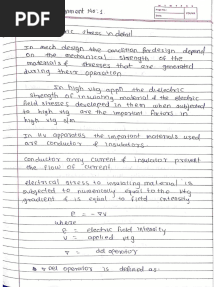 PDF
ment No : 1
stress in detail
In mech design the condition for design depend
on the mechanical strength of the
materials & stresses that are generated
during there operation
In high vtg appn the dielectric
strength of insulating material & the electric
field stresses developed in them when subjected
to high vtg are the important factors in
high vtg s/m
In Hv apparatus the important materials used
are conductor & insulators.
conductor carry current & insulator prevent
the flow of current
electrical stress to insulating material is
subjected to numerically equal to the vtg
gradient & is equal to field intensity
E = - ∇v
where
E = electric field intensity
V = applied vtg
∇ = del operatory
∇ del operators is defined as